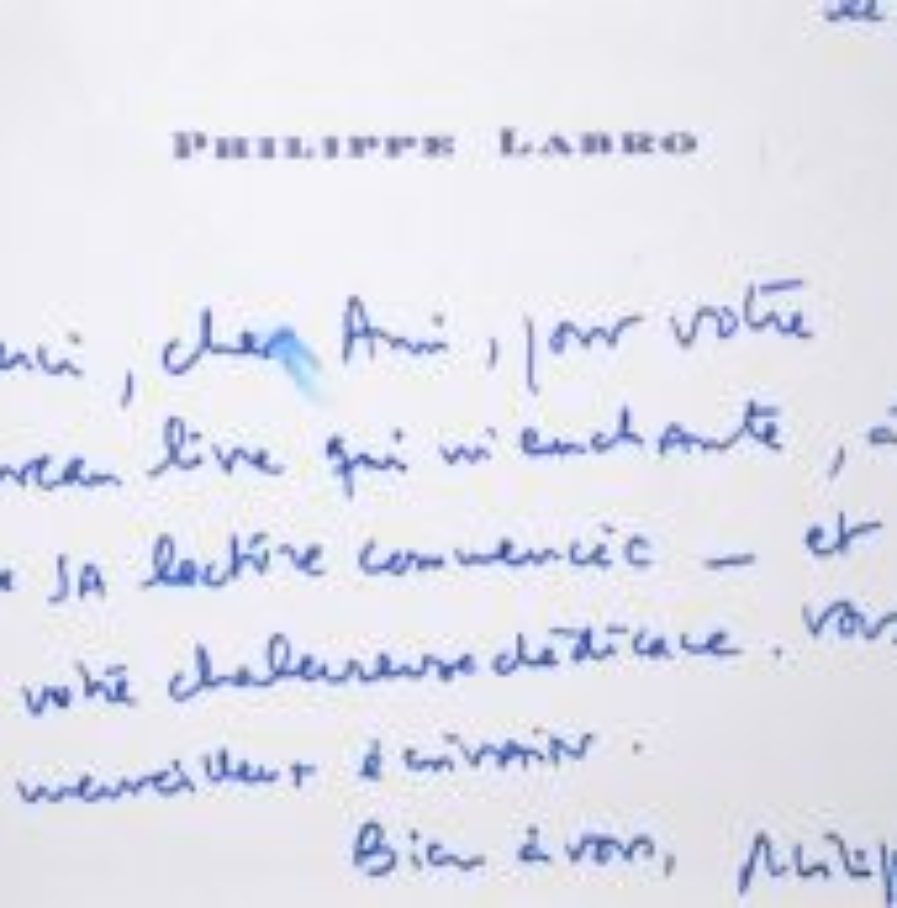 le
PHILIPPE LABRO
erci, cher Ami, pour votre
uveau livre qui m'enchante, à
SA lecture commencée — et
votre chaleureuse dédicace. Vous
merveilleux écrivain.
Bien à vous, Philip